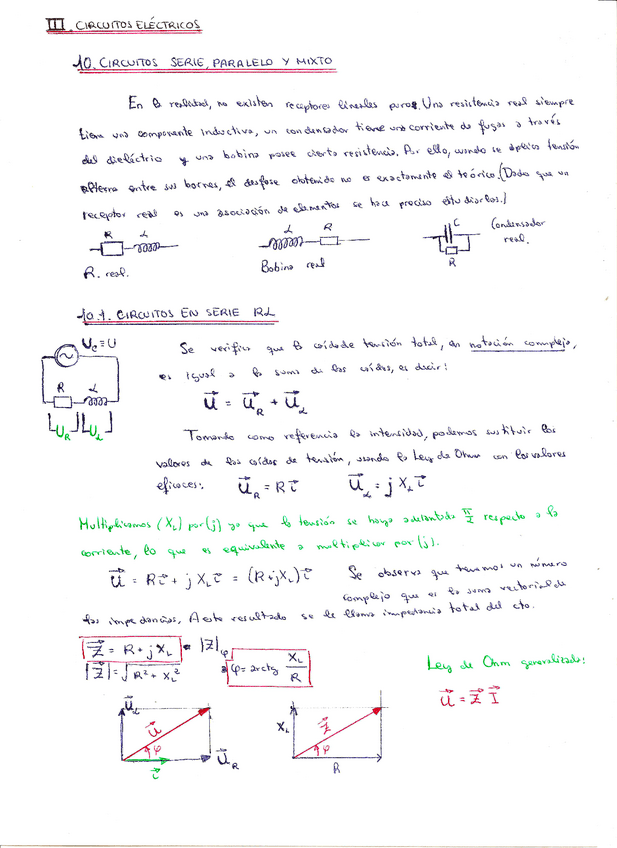 III. CIRCUITOS ELÉCTRICOS
10. CIRCUITOS SERIE, PARALELO Y MIXTO
En la realidad, no existen receptores lineales puros. Una resistencia real siempre
tiene una componente inductiva, un condensador tiene una corriente de fugas a través
del dieléctrio y una bobina posee cierta resistencia. Por ello, cuando se aplica tensión
alterna entre sus bornes, el desfase obtenido no es exactamente el teórico. (Dado que un
receptor real es una asociación de elementos se hace preciso estudiarlos.)
R L L R C Condensador
real.
R. real. Bobina real R
10.1. CIRCUITOS EN SERIE RL
U_C ≡ U
Se verifica que la caída de tensión total, en notación compleja,
es igual a la suma de las caídas, es decir:
R L
U⃗ = U⃗_R + U⃗_L
U_R U_L
Tomando como referencia la intensidad, podemos sustituir los
valores de las caídas de tensión, usando la Ley de Ohm con los valores
eficaces: U⃗_R = R I⃗ U⃗_L = j X_L I⃗
Multiplicamos (X_L) por (j) ya que la tensión se haya adelantada π/2 respecto a la
corriente, lo que es equivalente a multiplicar por (j).
U⃗ = R I⃗ + j X_L I⃗ = (R+jX_L) I⃗ Se observa que tenemos un número
complejo que es la suma vectorial de
las impedancias. A este resultado se le llama impedancia total del cto.
Z⃗ = R + j X_L = |Z|_φ
|Z⃗| = √(R² + X_L²) φ = arctg X_L/R
Ley de Ohm generalizada:
U⃗ = Z⃗ I⃗
U⃗_L U⃗ φ U⃗_R I⃗
X_L Z⃗ φ R